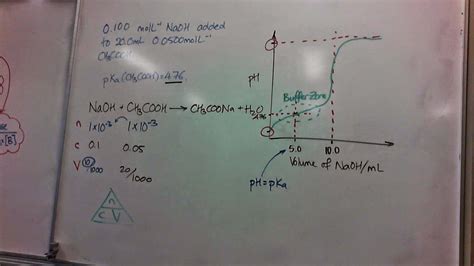 0.100 molL⁻¹ NaOH added
to 20.0mL 0.0500molL⁻¹
CH₃COOH
pKa (CH₃COOH) = 4.76
NaOH + CH₃COOH → CH₃COONa + H₂O
n 1×10⁻³ 1×10⁻³
c 0.1 0.05
V 10/1000 20/1000
n
C V
pH
Buffer Zone
4.76
5.0 10.0
Volume of NaOH/mL
pH=pKa
[B]